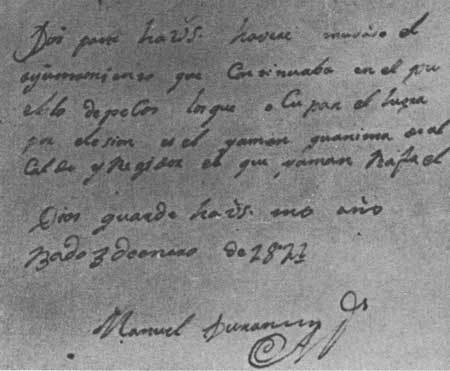 Doi parte ha Vs. haverse mudado el
ayumamienzo que Continuaba en el pue
eblo de pecos los que o Cupan el lugar
por elesion es el yaman guanima de al
Calde y Regidor el que yaman Rafael
Dios guarde ha Vs. ms año
Bado 3 de enero de 1821
Manuel Duran